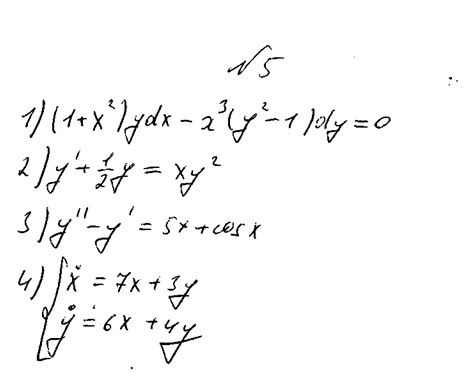 №5
1) (1+x²)ydx − x³(y²−1)dy = 0
2) y' + 1/2 y = xy²
3) y'' − y' = 5x + cosx
4) { ẋ = 7x + 3y
ẏ = 6x + 4y